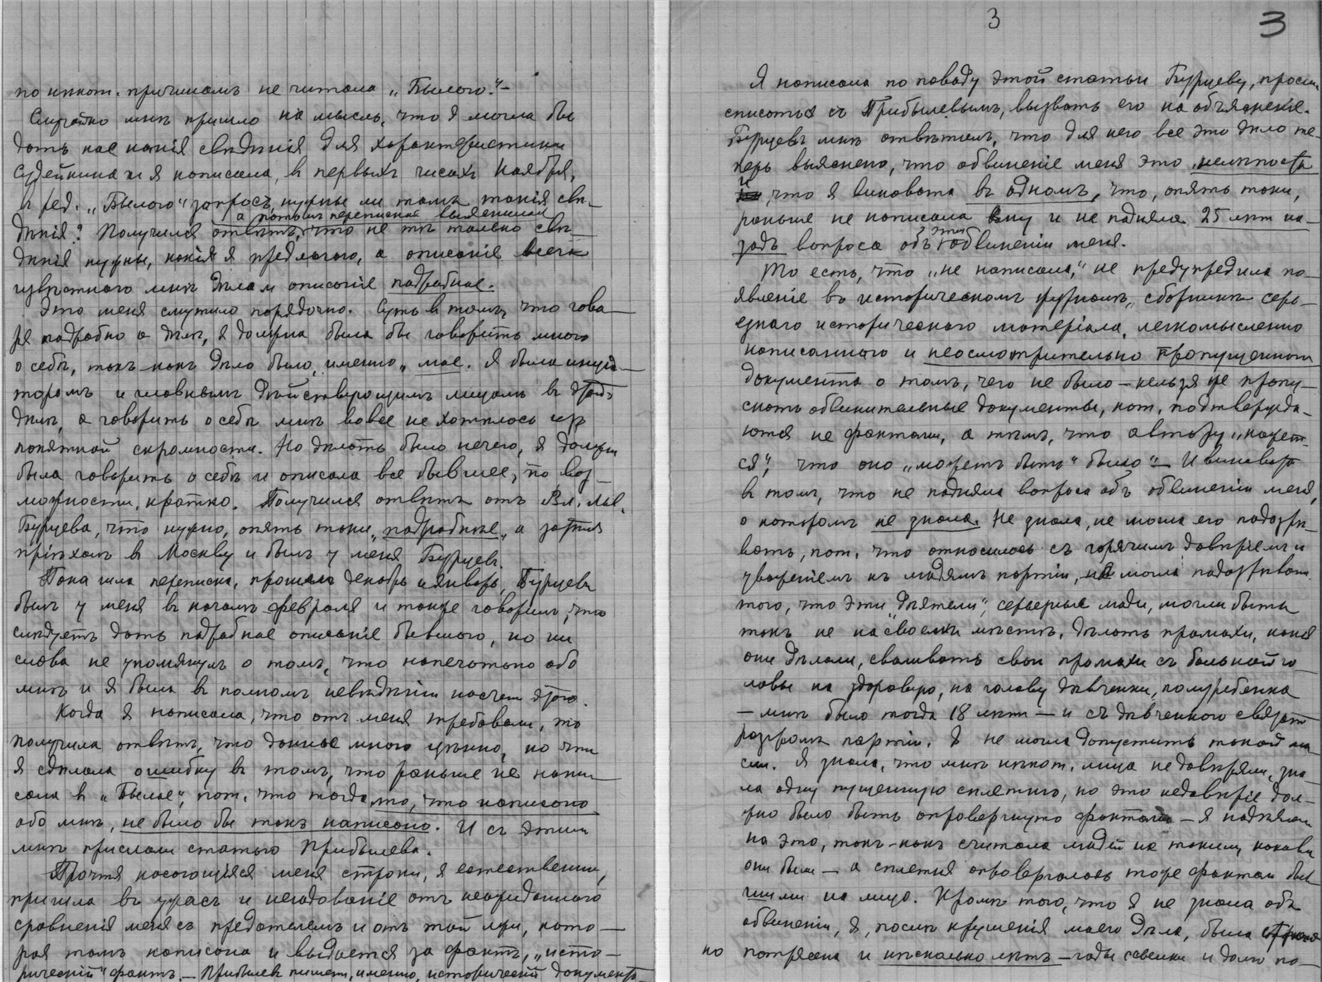 по нѣкот. причинамъ не читала „Былого“.–
Случайно мнѣ пришло на мысль, что я могла бы
дать кое какія свѣдѣнія для характеристики
Судейкина и я написала, въ первыхъ числахъ Ноября,
въ ред. „Былого“ запросъ, нужны ли тамъ такія свѣ–
а потомъ перепиской выяснилось
дѣнія? Получился отвѣтъ, что не тѣ только свѣ–
дѣнія нужны, какія я предлагаю, а описаніе всего
извѣстнаго мнѣ дѣла и описаніе подробное.
Это меня смутило порядочно. Суть въ томъ, что гово–
ря подробно о дѣлѣ, я должна была бы говорить много
о себѣ, такъ какъ дѣло было, именно, мое. Я была иниціа–
торомъ и главнымъ дѣйствующимъ лицомъ въ этомъ
дѣлѣ, а говорить о себѣ мнѣ вовсе не хотѣлось изъ
понятной скромности. Но дѣлать было нечего, я должна
была говорить о себѣ и описала все бывшее, по воз–
можности, кратко. Получился отвѣтъ отъ Вл. Льв.
Бурцева, что нужно, опять таки, „подробнѣе“, а затѣмъ
пріѣхалъ въ Москву и былъ у меня Бурцевъ.
Пока шла переписка, прошелъ декабрь и январь, Бурцевъ
былъ у меня въ началѣ февраля и также говорилъ, что
слѣдуетъ дать подробное описаніе бывшаго, но ни
слова не упомянулъ о томъ, что напечатано обо
мнѣ и я была въ полномъ невѣдѣніи насчетъ этого.
Когда я написала, что отъ меня требовали, то
получила отвѣтъ, что данное много цѣнно, но что
я сдѣлала ошибку въ томъ, что раньше не напи–
сала въ „Былое“, пот. что тогда то, что написано
обо мнѣ, не было бы такъ написано. И съ этимъ
мнѣ прислали статью Прибылева.
Прочтя касающіяся меня строки, я естественно,
пришла въ ужасъ и негодованіе отъ неожиданнаго
сравненія меня съ предателемъ и отъ той лжи, кото–
рая тамъ написана и выдается за фактъ, „исто–
рическій“ фактъ, – Прибылевъ пишетъ, именно, историческій документъ
3
3
Я написала по поводу этой статьи Бурцеву, прося
списаться съ Прибылевымъ, вызвать его на объясненіе.
Бурцевъ мнѣ отвѣтилъ, что для него все это дѣло те–
перь выяснено, что обвиненіе меня это нелѣпость
и, что я виновата въ одномъ, что, опять таки,
раньше не написала ему и не подняла 25 лѣтъ на–
задъ вопроса объ этомъ обвиненіи меня.
То есть, что „не написала“, не предупредила по–
явленіе въ историческомъ журналѣ, сборникѣ серь–
езнаго историческаго матеріала, легкомысленно
написаннаго и неосмотрительно пропущеннаго
документа о томъ, чего не было – нельзя же пропу–
скать обвинительные документы, кот. подтвержда–
ются не фактами, а тѣмъ, что автору „кажет–
ся“, что оно „можетъ быть“ было“ – И виновата
въ томъ, что не подняла вопроса объ обвиненіи меня,
о которомъ не знала. Не знала, не могла его подозрѣ–
вать, пот. что относилась съ горячимъ довѣріемъ и
уваженіемъ къ людямъ партіи, не могла подозрѣвать
того, что эти „дѣятели“, серьезные люди, могли быть
такъ не на своемъ мѣстѣ, дѣлать промахи, какія
они дѣлали, сваливать свои промахи съ больной го–
ловы на здоровую, на голову дѣвченки, полуребенка
– мнѣ было тогда 18 лѣтъ – и съ дѣвченкою связать
разгромъ партіи. Я не могла допустить такой мы–
сли. Я знала, что мнѣ нѣкот. лица не довѣряли, зна–
ла одну пущенную сплетню, но это недовѣріе дол–
жно было быть опровергнуто фактами – я надѣялась
на это, такъ какъ считала людей не такими, какови
они были – а сплетня опровергалась тоже фактами быв–
шими на лицо. Кромѣ того, что я не знала объ
обвиненіи, я, послѣ крушенія моего дѣла, была
но потрясена и нѣсколько лѣтъ – годы ссылки и долго по–